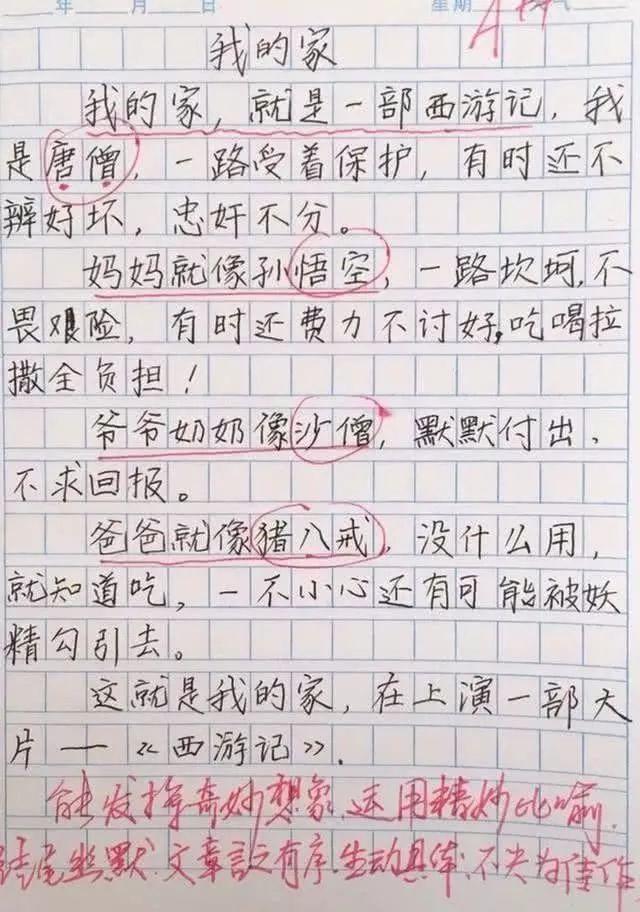 年 月 日 星期 气
我的家
我的家，就是一部西游记，我
是唐僧，一路受着保护，有时还不
辨好坏，忠奸不分。
妈妈就像孙悟空，一路坎坷，不
畏艰险，有时还费力不讨好，吃喝拉
撒全负担！
爷爷奶奶像沙僧，默默付出、
不求回报。
爸爸就像猪八戒，没什么用，
就知道吃，一不小心还有可能被妖
精勾引去。
这就是我的家，在上演一部大
片一《西游记》.
能发挥奇妙想象.运用精妙比喻.
结尾幽默.文章言之有序.生动具体.不失为佳作